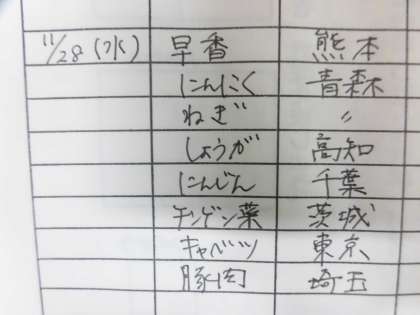 11/28(水) 早香 熊本
にんにく 青森
ねぎ 〃
しょうが 高知
にんじん 千葉
チンゲン菜 茨城
キャベツ 東京
豚肉 埼玉